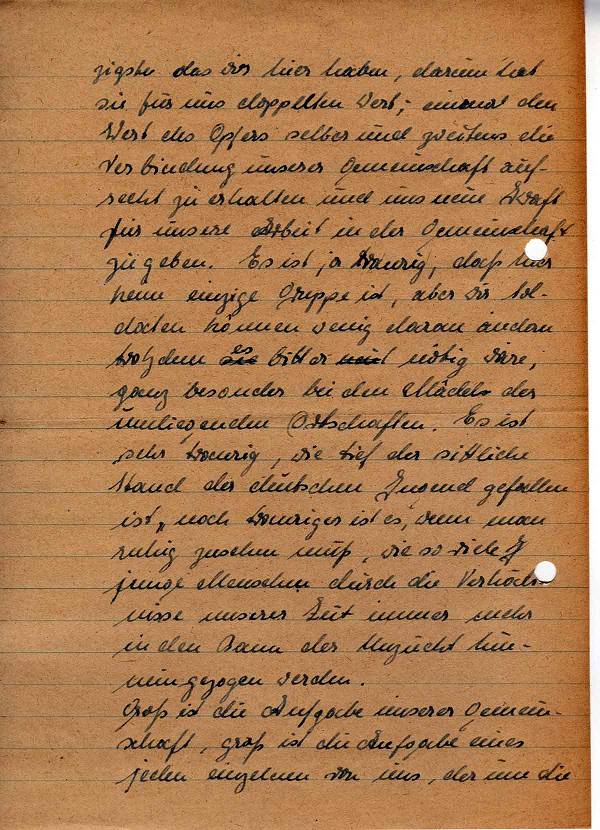 zigste das wir hier haben, darum hat
sie für uns doppelten Wert; einmal den
Wert des Opfers selber und zweitens die
Verbindung unserer Gemeinschaft auf-
recht zu erhalten und uns neue Kraft
für unsere Arbeit in der Gemeinschaft
zu geben. Es ist ja traurig, daß hier
keine einzige Gruppe ist, aber wir Sol-
daten können wenig daran ändern
trotzdem es bitter nötig wäre,
ganz besonders bei den Mädels der
umliegenden Ortschaften. Es ist
sehr traurig, wie tief der sittliche
Stand der deutschen Jugend gefallen
ist, noch trauriger ist es, wenn man
ruhig zusehen muß, wie so viele
junge Menschen durch die Verhält-
nisse unserer Zeit immer mehr
in den Bann der Unzucht hin-
neingezogen werden.
Groß ist die Aufgabe unserer Gemein-
schaft, groß ist die Aufgabe eines
jeden einzelnen von uns, der um die